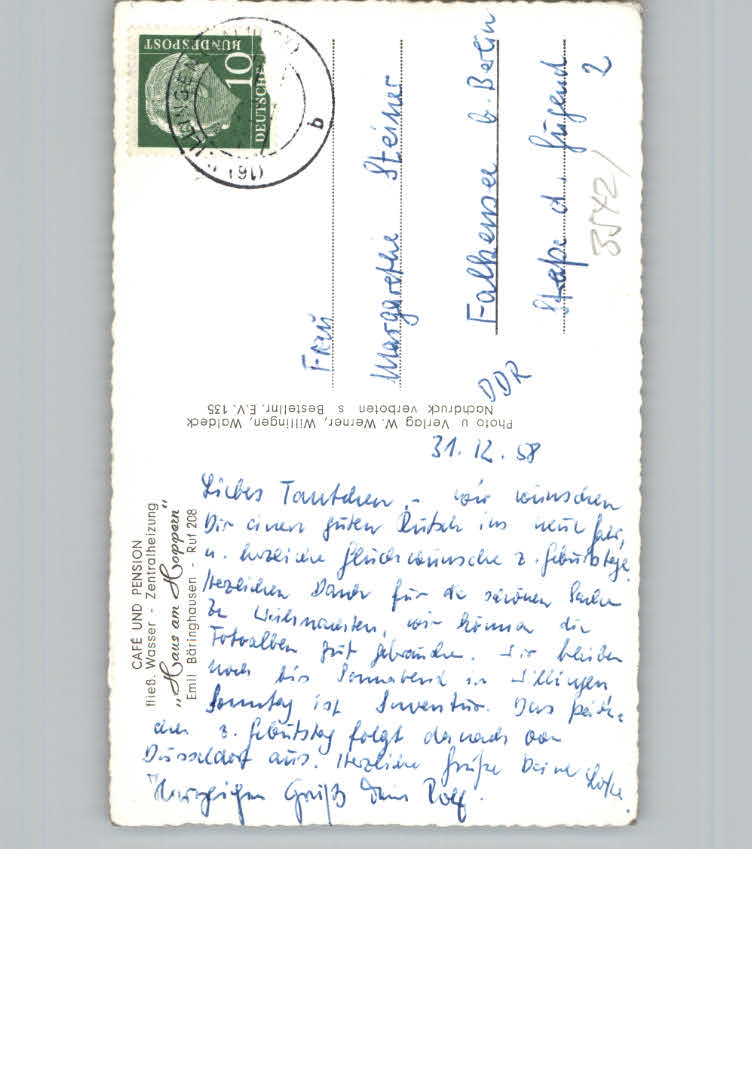 CAFÉ UND PENSION
fließ. Wasser - Zentralheizung
„Haus am Hoppern"
Emil Bäringhausen - Ruf 208
31. 12. 58
Liebes Tantchen, - wir wünschen
Dir einen guten Rutsch ins neue Jahr,
u. herzliche Glückwünsche z. Geburtstage.
Herzlichen Dank für die schönen Sachen
zu Weihnachten, wir können die
Fotoalben gut gebrauchen. Wir bleiben
noch bis Sonnabend in Willingen
Sonntag ist Inventur. Das
z. Geburtstag folgt danach von
Düsseldorf aus. Herzliche Grüße Deine
Gruß Dein Rolf.
Photo u. Verlag W. Werner, Willingen, Waldeck
Nachdruck verboten s Bestellnr. E.V. 135
DEUTSCHE
BUNDESPOST
10
(16)
b
Frau
Margarethe Steiner
Falkensee b. Berlin
DDR
Straße d. Jugend
2
3542/